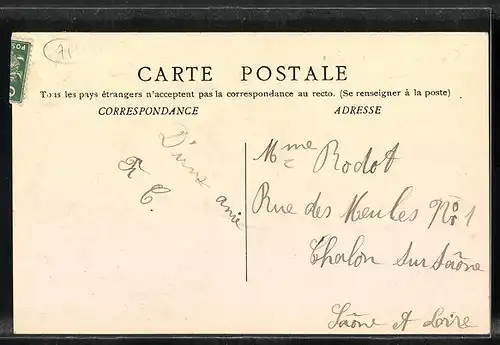 71
POS
CARTE POSTALE
Tous les pays étrangers n'acceptent pas la correspondance au recto. (Se renseigner à la poste)
CORRESPONDANCE
ADRESSE
D'une amie
R C.
Mme Rodot
Rue des Meules No 1
Chalon sur Saône
Saône et Loire